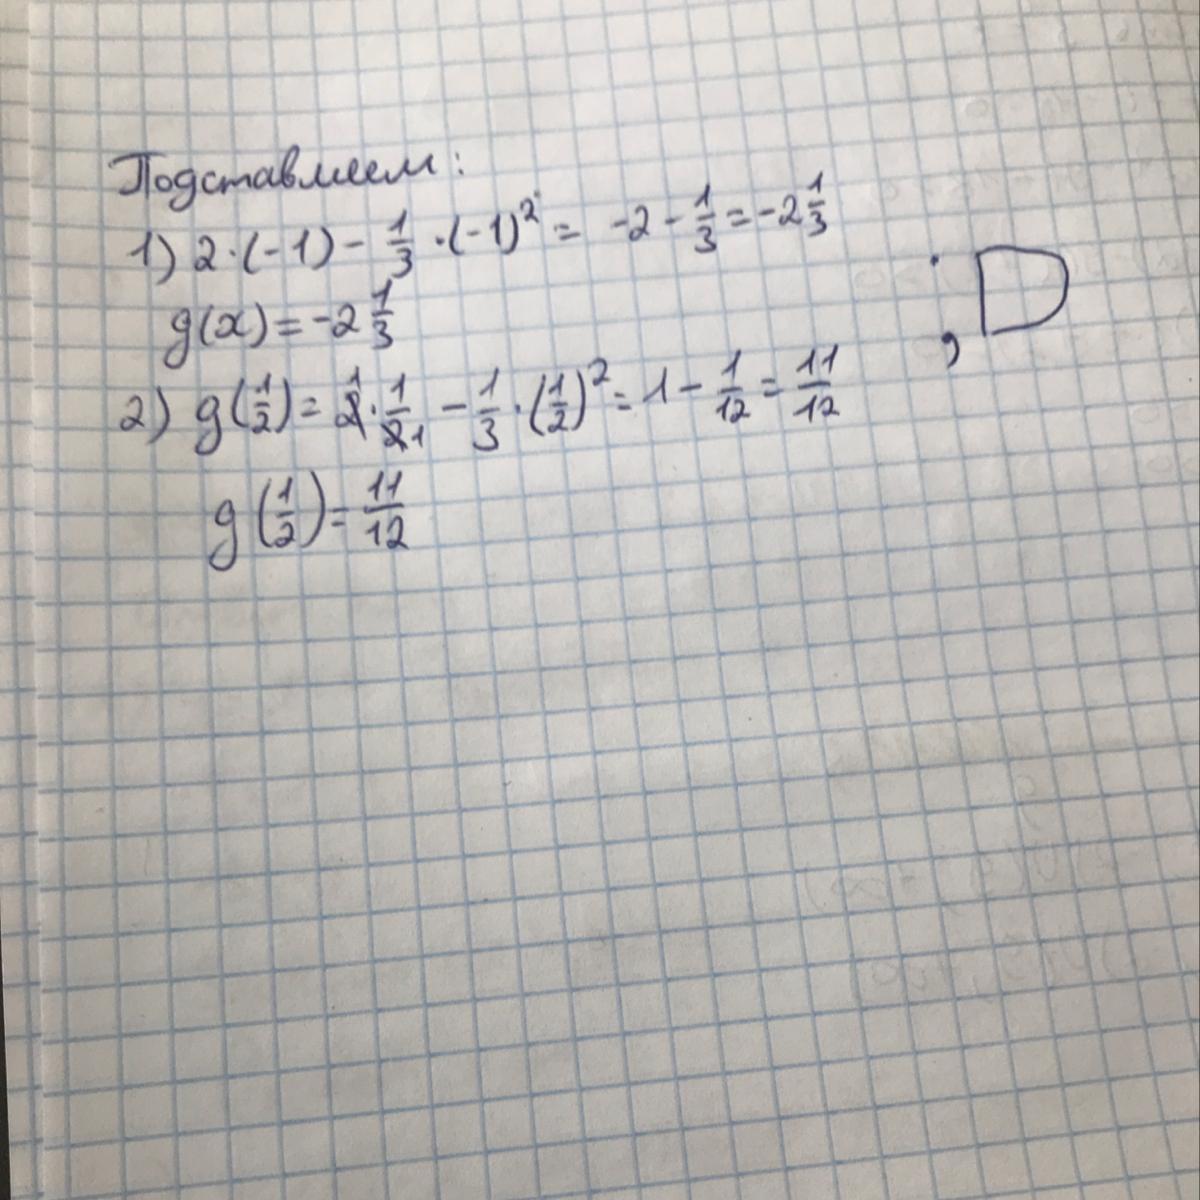 Подставляем:
1) 2·(-1) - 1/3 ·(-1)² = -2 - 1/3 = -2 1/3
g(x) = -2 1/3
2) g(1/2) = 2̸¹ · 1/2̸₁ - 1/3 · (1/2)² = 1 - 1/12 = 11/12
g(1/2) = 11/12
;D